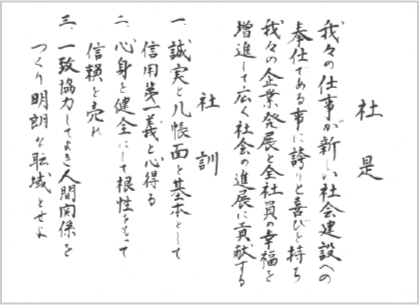 社是
我々の仕事が新しい社会建設への
奉仕である事に誇りと喜びを持ち
我々の企業発展と全社員の幸福を
増進して広く社会の進展に貢献する
社訓
一、誠実と几帳面を基本として
信用第一義と心得る
二、心身を健全にして根性をもって
信頼を売れ
三、一致協力してよき人間関係を
つくり明朗な職域とせよ